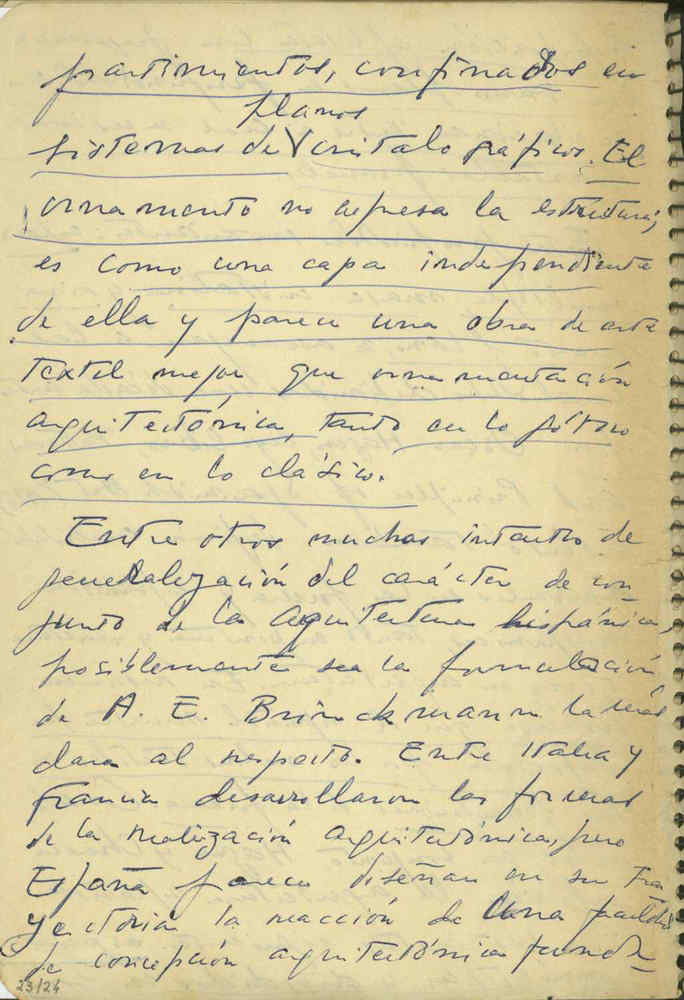 partimientos, confinados en
planos
sistemas de V cristalográficos. El
ornamento no expresa la estructura;
es como una capa independiente
de ella y parece una obra de arte
textil mejor que ornamentación
arquitectónica, tanto en lo gótico
como en lo clásico.
Entre otros muchos intentos de
generalización del carácter de con-
junto de la arquitectura hispánica,
posiblemente sea la formulación
de A. E. Brinckmann la más
clara al respecto. Entre Italia y
Francia desarrollaron las formas
de la realización arquitectónica, pero
España parece diseñar en su tra
yectoria la reacción de una facultad
de concepción arquitectónica
23/24